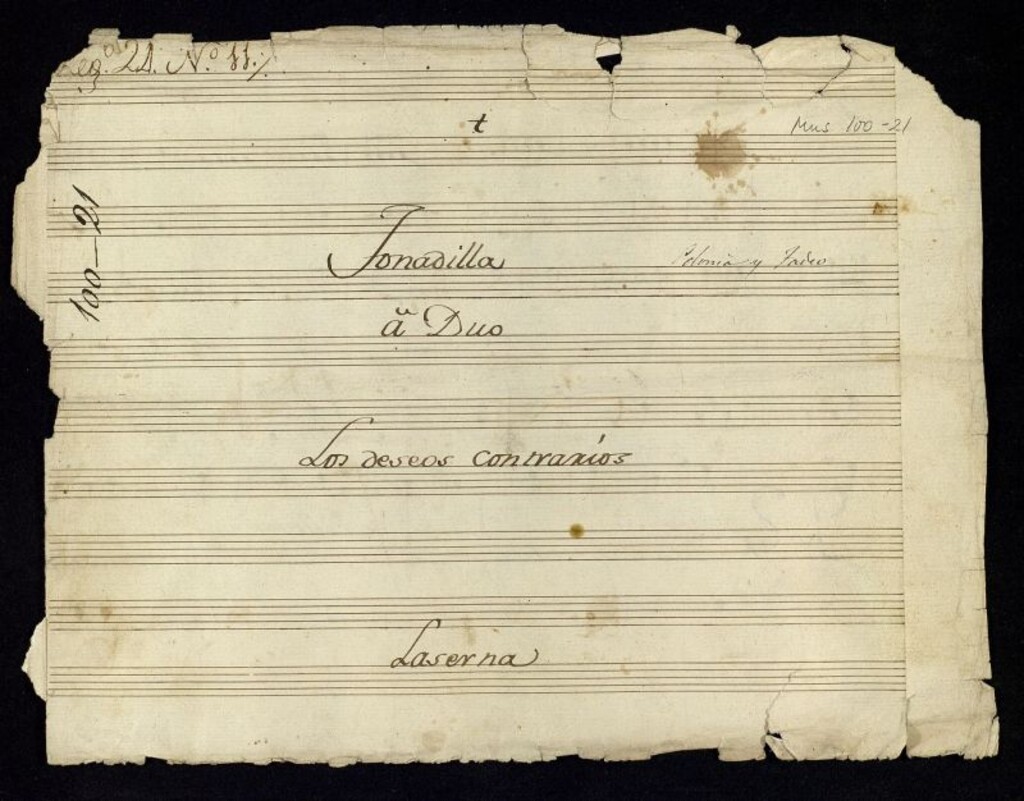 Leg.º 21. N.º 11.
t
Mus 100-21
100-21
Tonadilla
Polonia y Tadeo
a Duo
Los deseos contrarios
Laserna